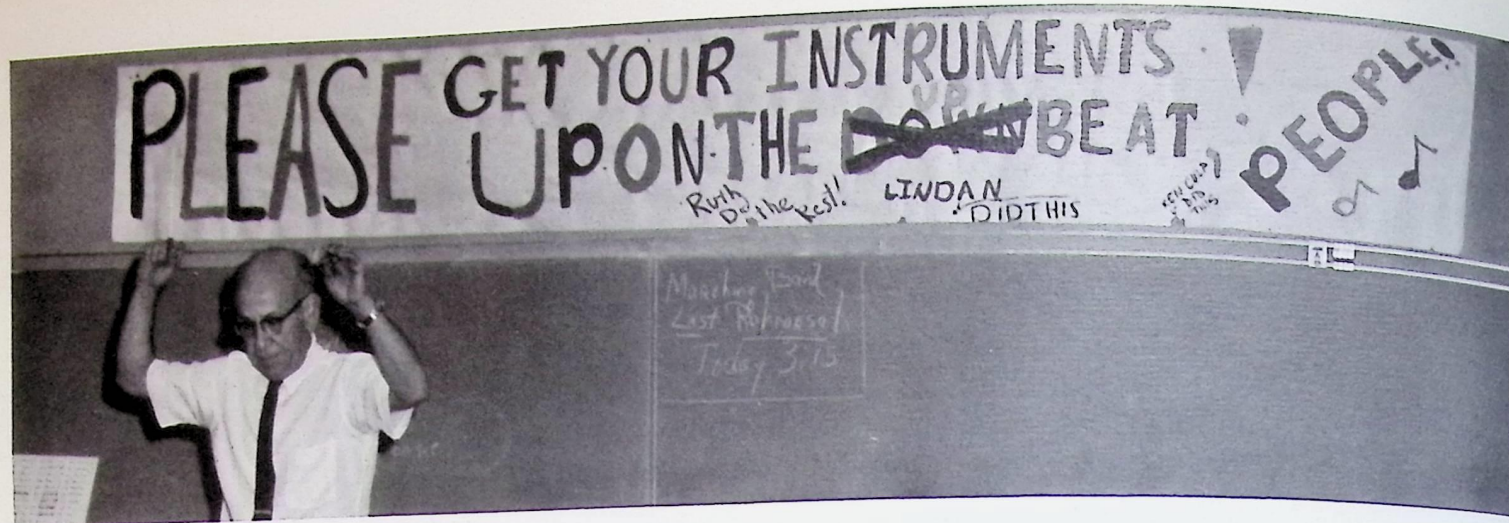 PLEASE GET YOUR INSTRUMENTS !
UP ON THE DOWN UP BEAT
PEOPLE!!
Ruth Do the Rest!
LINDA N DID THIS
DID THIS
Marching Band
Last Rehearsal
Today 3:15